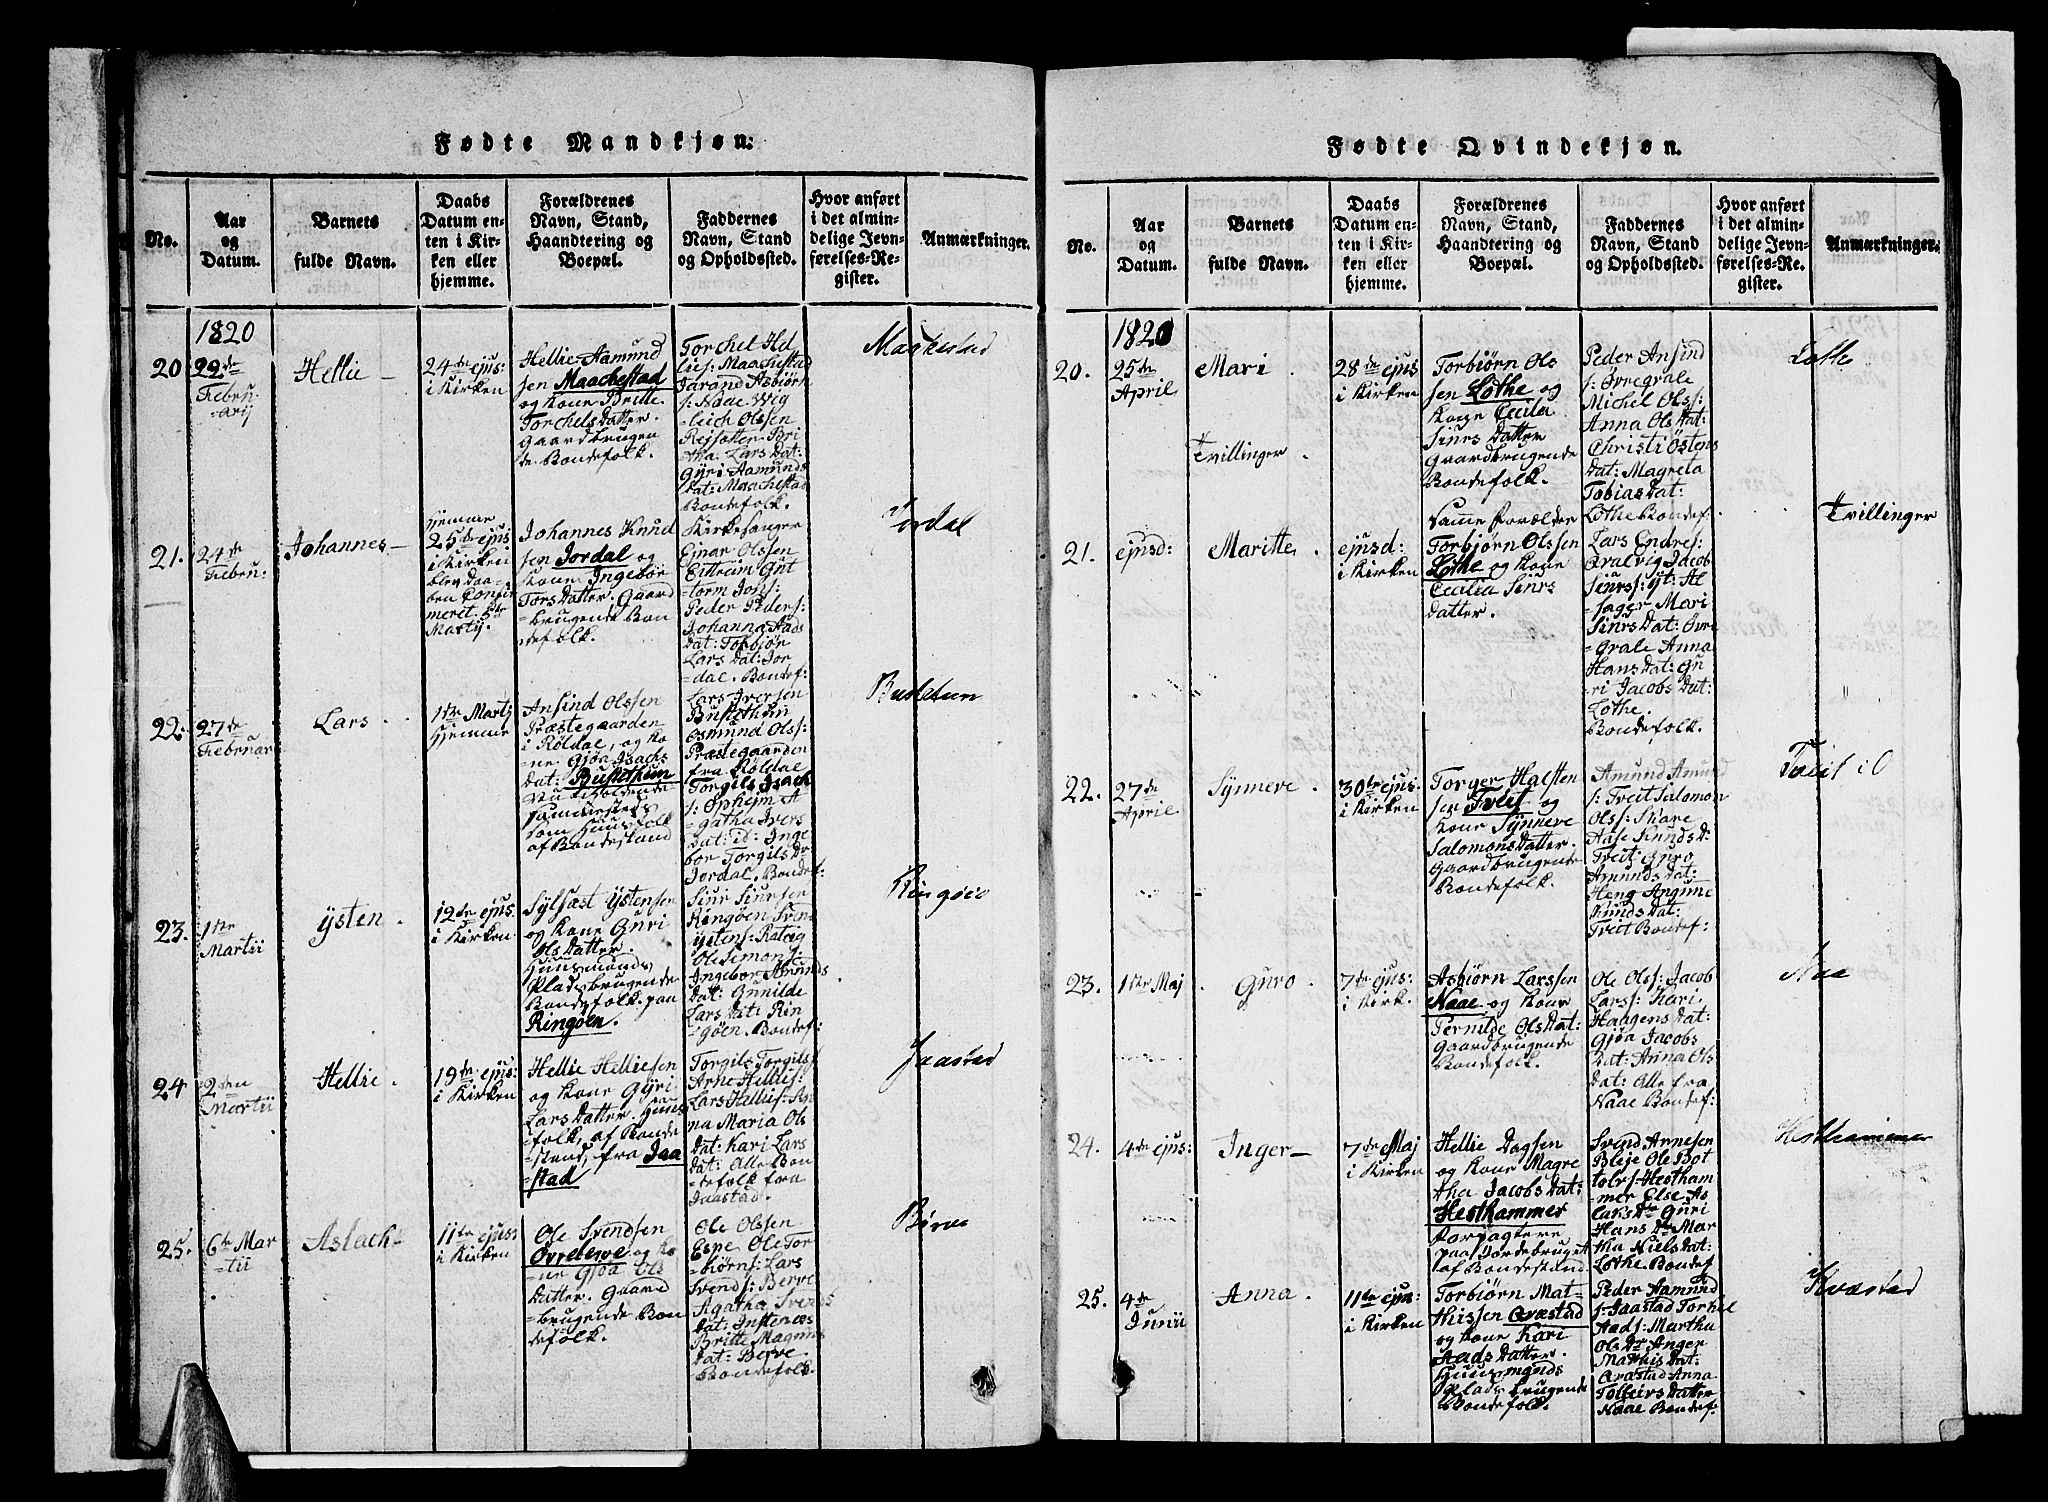 Fødte Mandkjøn.
No.
Aar
og
Datum.
Barnets
fulde Navn.
Daabs
Datum en-
ten i Kir-
ken eller
hjemme.
Forældrenes
Navn, Stand,
Haandtering og
Boepæl.
Faddernes
Navn, Stand
og Opholdssted.
Hvor anført
i det almin-
delige Jevn-
førelses-Re-
gister.
Anmærkninger.
1820
20
22de
Febru
-arij
Hellie -
24de ejus:
i Kirken
Hellie Aamund
sen Maachestad
og Kone Britte
Torchels Datter.
Gaardbrugen
de Bondefolk.
Torchel Hel
lies: Maachestad
Jarand Asbiørn
s: Naae Wig
-leich Olssen
Rejsætter. Bri
tha Lars Dat:
Gÿri Aamunds
Dat: Maachestad
Bondefolk.
Maakestad
21.
24de
Febru:
Johannes -
Hjemme
25de ejus
i Kirken
blev Daa-
ben Confir
meret 5te
Martij.
Johannes Knud
sen Jordal og
Kone Ingebor
Tors Datter. Gaard
-brugende Bon
-defolk.
Kirkesanger
Einar Olssen
Eittreim Gut
torm Jois:
Peder Peders:
Johanna Aads
Dat: Torbiør
Lars Dat: Jor
dal. Bondef:
Jordal
22.
27de
Februar
Lars
1te Martj
Hjemme
Ansind Olssen
Præstegaarden
i Røldal, og Ko
ne Gjøa Isachs
Dat: Bustethun
Huus folk
af Bondestand
Lars Iversen
Bustethun
Osmund Olss:
Præstegaarden
fra Røldal
Torgils Isach
s: Opheim A
-gatha Ivers
Dat: id: Inge
bor Torgils Dr
Jordal. Bondef:
Bustetun
23.
1te
Martii
Ÿsten
12te ejus.
i Kirken
Sÿlfæst Ÿstensen
og Kone Guri
Ols Datter.
Huusmands
Pladsbrugende
Bondefolk paa
Ringøen.
Siur Siursen
Ringøen Sven
Ÿstens:
Ole Simons:
Ingebor Amunds
Dat: Gunilde
Lars Dat: Rin
-gøen. Bondef:
Ringøen
24
2den
Martii
Hellie.
19de ejus:
i Kirken
Hellie Helliesen
og Kone Gÿri
Lars Datter. Huus
-folk, af Bonde
-stand, fra Jaa
-stad
Torgils Torgils:
Arne Hellies:
Lars Hellies: An
na Maria Ols
Dat: Kari Lars
Dat: Alle Bon
-defolk fra
Jaastad.
Jaastad
25.
6te Mar
-tii
Aslach -
11te ejus:
i Kirken
Ole Svendsen
og Ko
ne Gjøa Ols
Datter. Gaard
-brugende Bon
defolk.
Ole Olssen
Espe Ole Tor
-biørns: Lars
Svends: Berve
Agatha Svends
Dat: Instenæs
Britte Magnus
Dat: Berve
Bondefolk.
Fødte Qvindekjøn.
No.
Aar
og
Datum.
Barnets
fulde Navn.
Daabs
Datum en-
ten i Kir-
ken eller
hjemme.
Forældrenes
Navn, Stand,
Haandtering og
Boepæl.
Faddernes
Navn, Stand
og Opholdssted.
Hvor anført
i det almin-
delige Jevn-
førelses-Re-
gister.
Anmærkninger.
1820
20.
25de
April
Mari
Tvillinger
28de ejus
i Kirken
Torbiørn Ols
sen Lothe og
Kone Cecilia
Siurs Datter
Gaardbrugende
Bondefolk.
Peder Ansind
s: Øvregrale
Michel Olss:
Anna Ols Dat:
Christi Östens
Dat: Magreta
Tobias Dat:
Lothe Bondef:
Lothe
21.
ejusd:
Maritte
ejusd:
i Kirken
Samme Forældre
Torbiørn Olssen
Lothe og Kone
Cecilia Siurs
datter.
Lars Endres:
Qvalvig Jacob
Siurs: yt: Al
-sager Mari
Siurs Dat: Øvre
-grale Anna
Hans Dat: Gu
-ri Jacobs Dat:
Lothe.
Bondefolk.
Tvillinger
22.
27de
April
Sÿnneve
30te ejus:
i Kirken
Torger Halsten
sen Tveit og
Kone Sÿnneve
Salomons Datter.
Gaardbrugende
Bondefolk.
Amund Amund
s: Tveit Salomon
Olss: Skare
Aase Knuds D:
Tveit Guro
Amunds Dat:
Heng Angune
Knuds Dat:
Tveit Bondef:
Tveit i O
23.
1te Maj
Guro
7de ejus:
i Kirk.
Asbiørn Larssen
Naae og Kone
Pernilde Ols Dat:
Gaardbrugende
Bondefolk.
Ole Olss: Jacob
Larss: Kari
Haagens Dat:
Gjøa Jacobs
Dat: Anna Ols
Dat: Alle fra
Naae Bondef:
Naa
24.
4de ejus:
Inger -
7de Maj
i Kirken
Hellie Dagsen
og Kone Magre
tha Jacobs Dat:
Hesthammer
Forpagtere
paa Jordebruget
af Bondestand.
Svend Arnesen
Bleje Ole Bot
tolvs: Hestham
mer Else As
laks Dr Guri
Hans Dr Mar
tha Niels Dat:
Lothe Bondef
Hesthammer
25.
4de
Junii
Anna
11te ejus:
i Kirken
Torbiørn Mat-
thissen Qvæstad
og Kone Kari
Aads Datter.
Huusmands
Plads brugende
Bondefolk.
Peder Aamund
s: Jaastad Torkel
Aads: Martha
Ols Dr Anger
Matthis Dat:
Qvæstad Anna
Tolleivs Datter
Naae Bondef:
Kvæstad